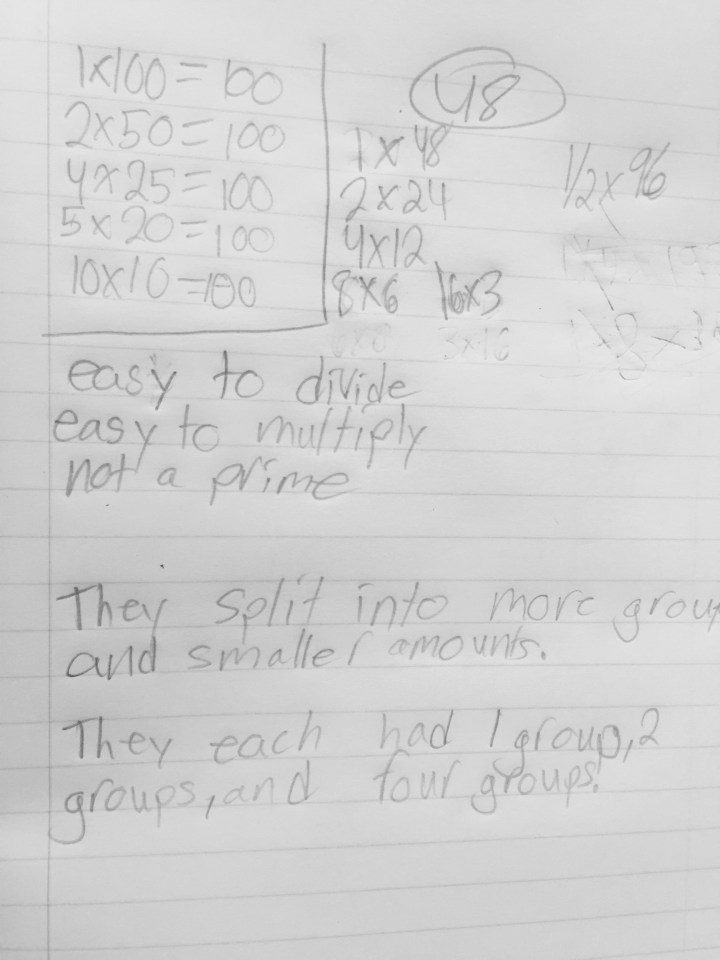 1x100=100
2x50=100
4x25=100
5x20=100
10x10=100
48
1x48
2x24
4x12
8x6 16x3
3x16
1/2x96
easy to divide
easy to multiply
not a prime
They split into more grou
and smaller amounts.
They each had 1 group, 2
groups, and four groups.